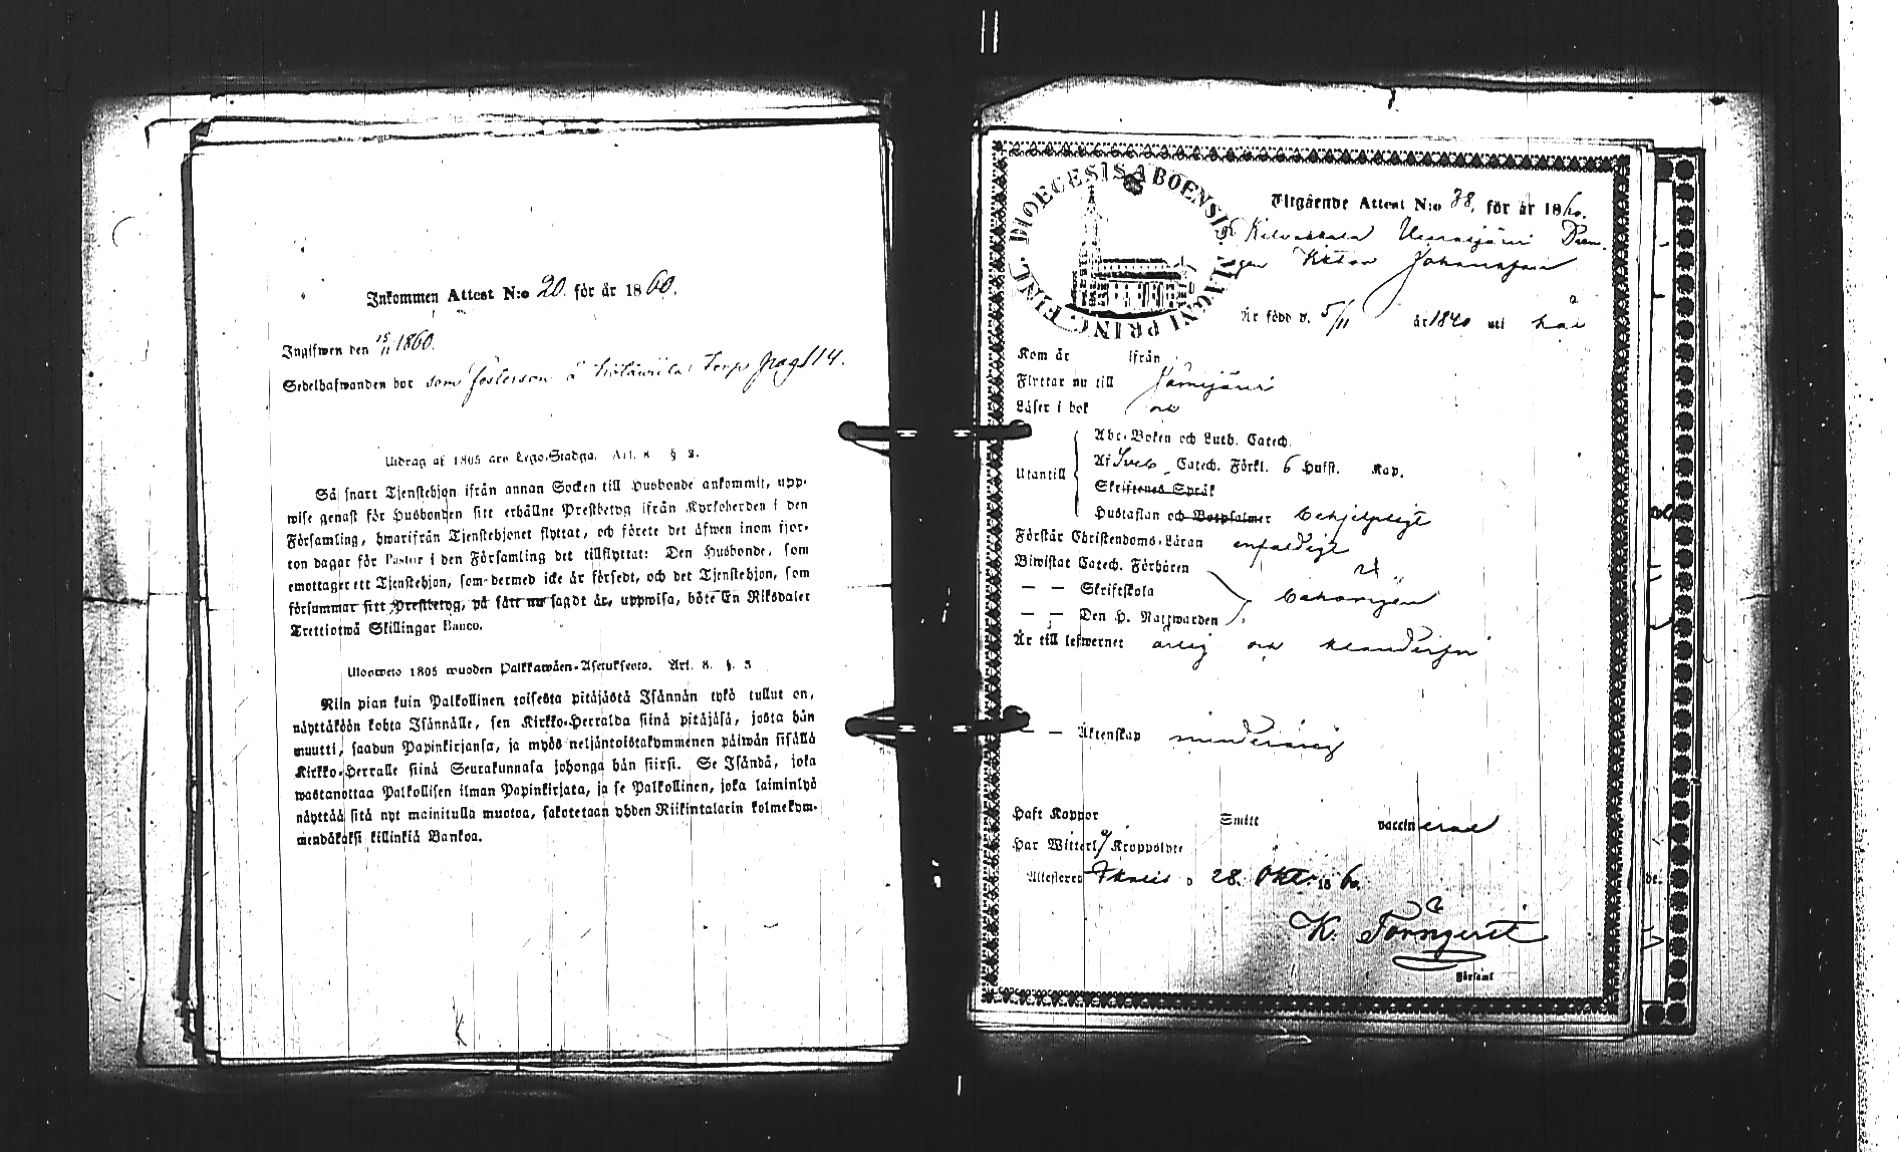 Inkommen Attest N:o 20. för år 1860.
Ingifwen den 15/11 1860.
Sedelhafwanden bor som fosterson å Torp pag 114.
Utdrag af 1805 års Lego-Stadga. Art. 8 § 2.
Så snart Tjenstehjon ifrån annan Socken till Husbonde ankommit, upp-
wise genast för Husbonden sitt erhållne Prestbetyg ifrån Kyrkoherden i den
Församling, hwarifrån Tjenstehjonet flyttat, och förete det äfwen inom fjor-
ton dagar för Pastor i den Församling det tillflyttat: Den Husbonde, som
emottager ett Tjenstehjon, som dermed icke är försedt, och det Tjenstehjon, som
försummar sitt Prestbetyg, på sätt nu sagdt är, uppwisa, böte En Riksdaler
Trettiotwå Skillingar Banco.
Ulosweto 1805 wuoden Palkkawäen-Asetuksesta. Art. 8. §. 3
Niin pian kuin Palkollinen toisesta pitäjästä Isännän tykö tullut on,
näyttäköön kohta Isännälle, sen Kirkko-Herralda siinä pitäjäsä, josta hän
muutti, saadun Papinkirjansa, ja myös neljäntoistakymmenen päiwän sisällä
Kirkko-Herralle siinä Seurakunnasa johonga hän siirsi. Se Isändä, joka
wastanottaa Palkollisen ilman Papinkirjata, ja se Palkollinen, joka laiminlyö
näyttää sitä nyt mainitulla muotoa, sakotetaan yhden Riikintalarin kolmekym-
mendäkaksi killinkiä Bankoa.
FINL. DIOECESIS ABOENSIS. MAGNI PRINC.
Utgående Attest N:o 38. för år 1860.
Johansson
Är född d. 5/11 år 1840 uti
Kom år ifrån
Flyttar nu till Jämijärvi
Läser i bok
Utantill
Abc-Boken och Luth. Catech.
Af Svebel. Catech. Förkl. 6 Hufst. Kap.
Skriftenes Språk
Hustaflan och Botpsalmer behjelpligt
Förstår Christendoms-Läran enfaldigt
Biwistat Catech. Förhören
— — Skriftskola
— — Den H. Nattwarden behörigen
Är till lefwernet ärlig och klanderfri
— — Äktenskap minderårig
Haft Koppor Smitt vaccinerad
Har Witterl. Kroppslyte
Attesteras Ikalis d 28. Oktr. 1860.
K. Törnqvist